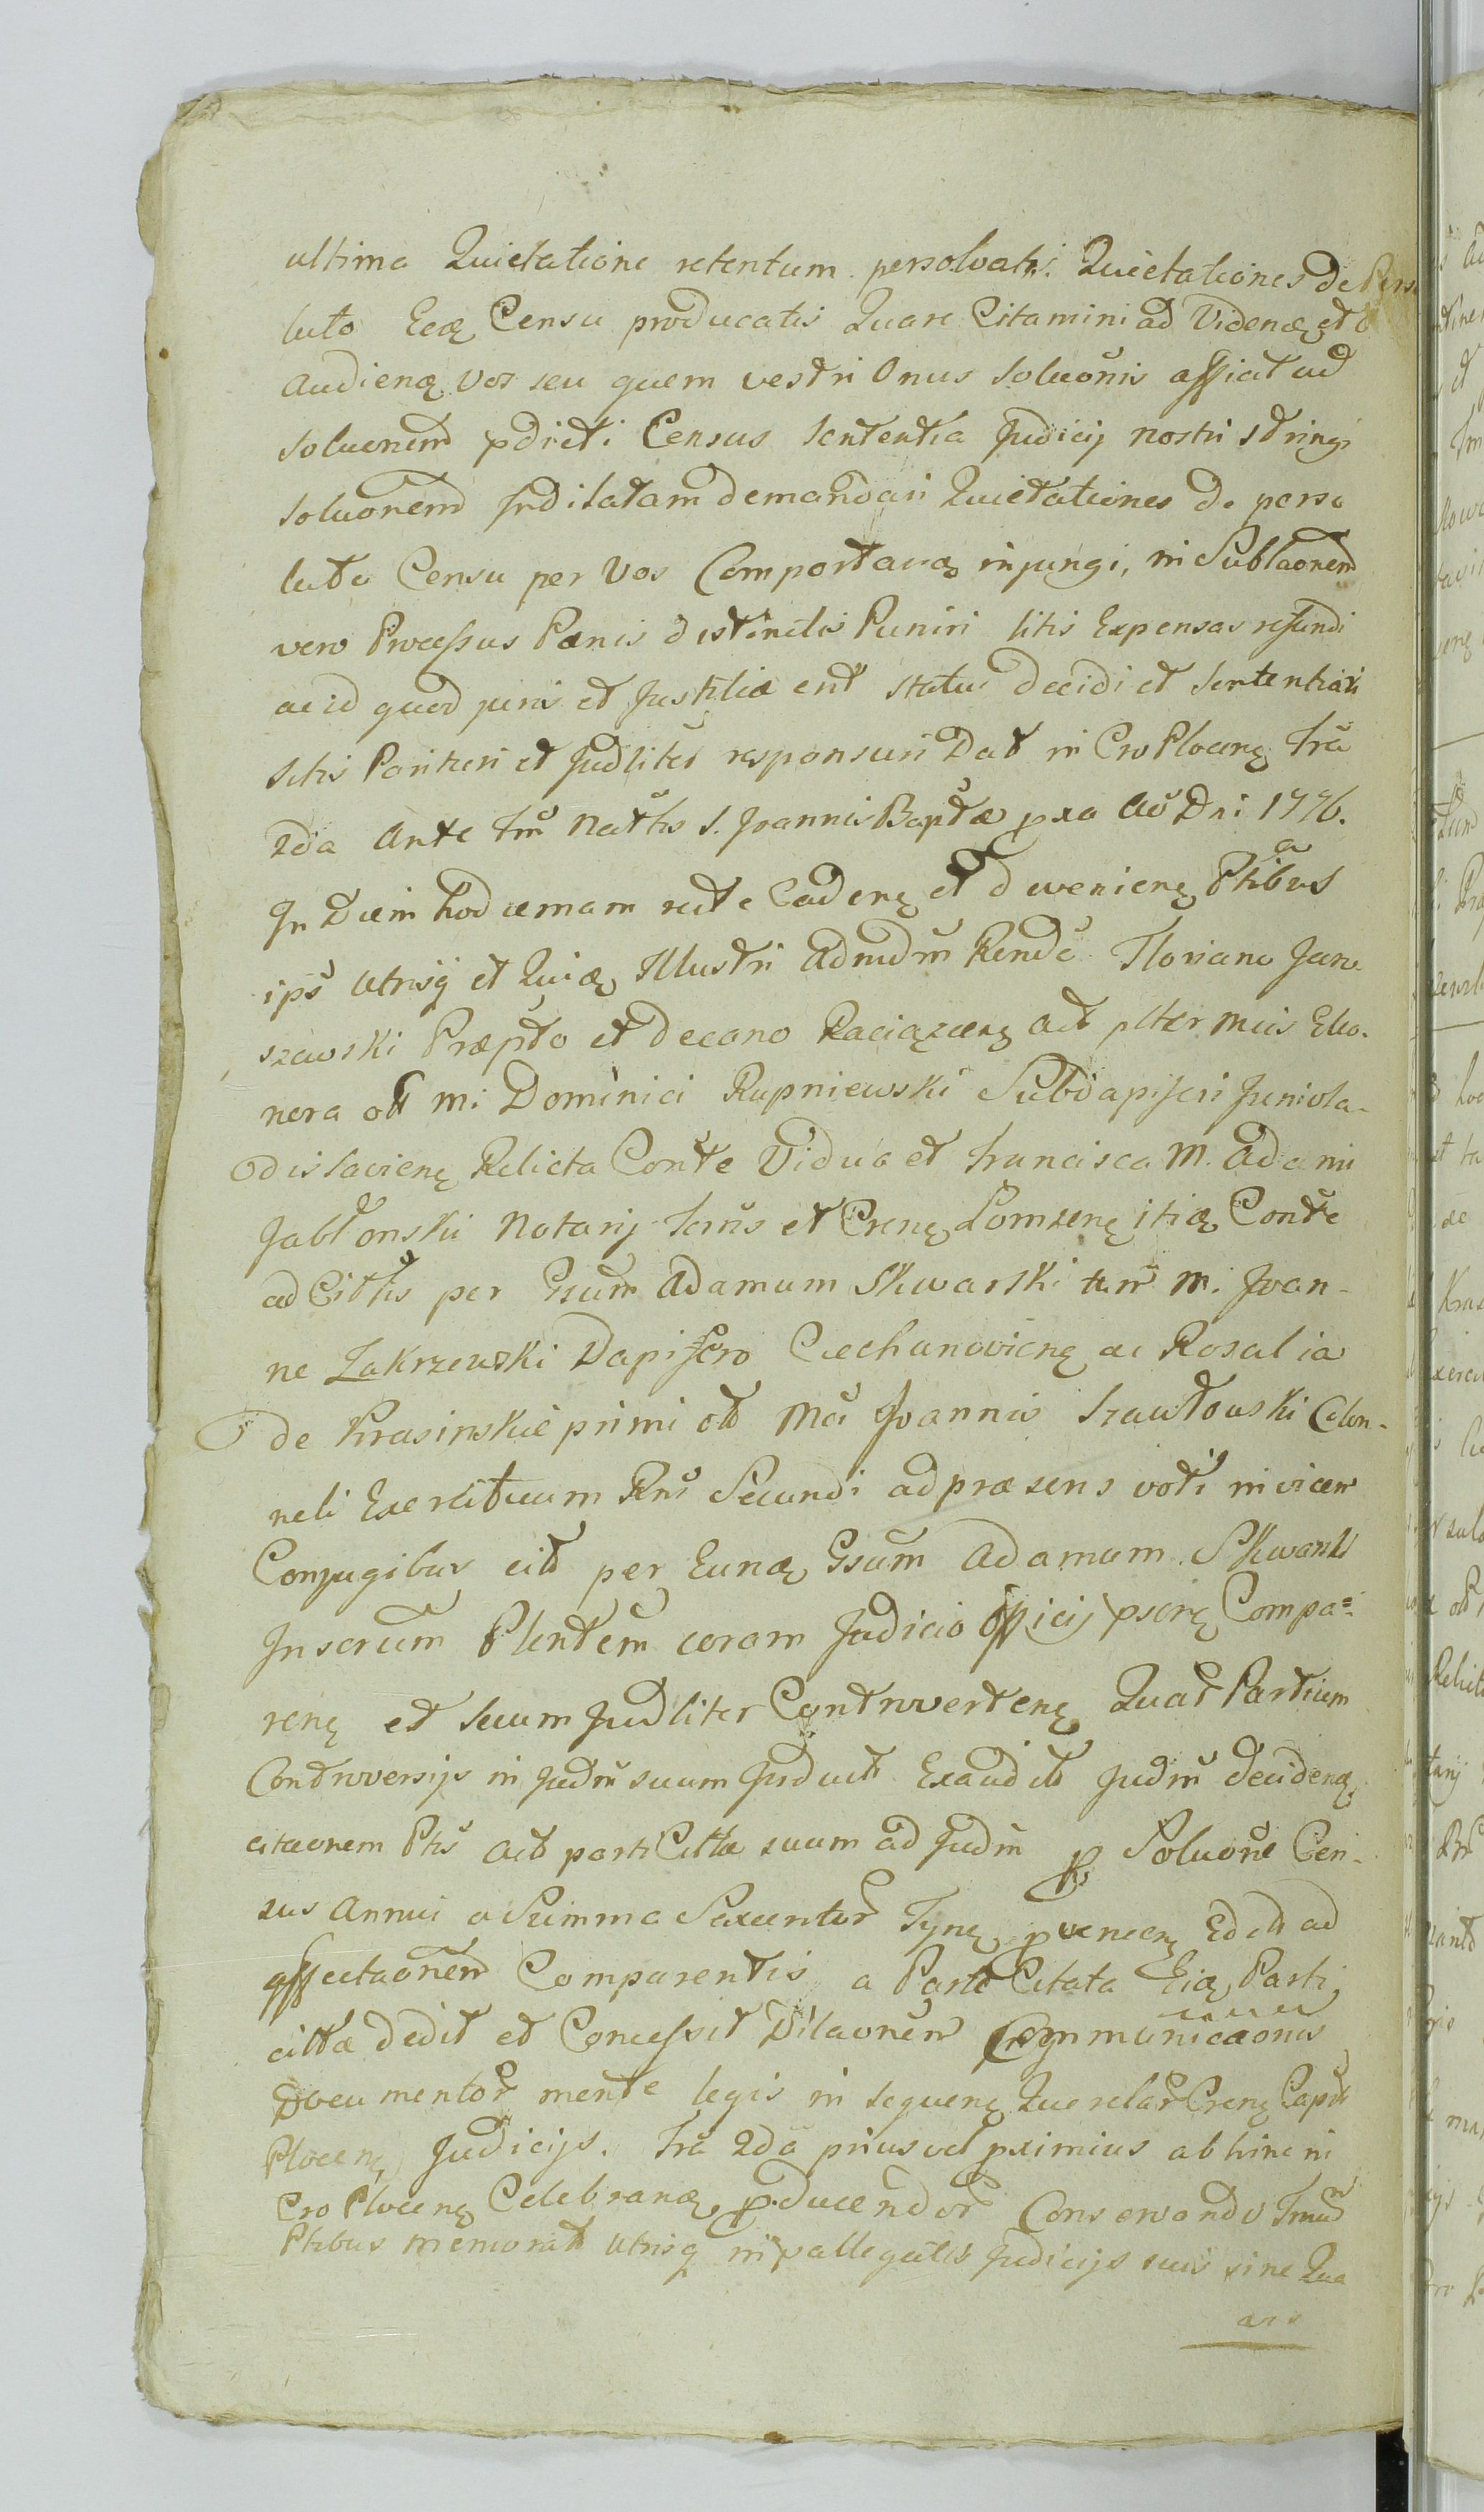 ultima Quietatione retentum persolvatis. Quietationes de Perso
luto Eoq Censu producatis Quare Citamini ad Videnq et
Audienq Vos seu quem vestri Onus Soluonis afficit ad
Soluonem pdicti Census Sententia Judicij nostri stringi
Soluonem Indilatam demandari Quietationes de perso
luto Censu per Vos Comportanq injungi, in Sublaonem
vero Processus Pœnis distinctis Puniri litis Expensas refundi
ac id quod juris et Justitiæ erit statui decidi et Sententiari
Sitis Parituri et Judliter responsuri Dat in Cro Plocenq Fra
2da Ante Fm Natitis S. Joannis Baptæ pxa Ao Dni 1776.
In Diem hodiernam recte Cadenq et devenienq Ptibus
ips Utrisq et Quiq Illustri Admdm Rendo Floriano Jaro
szewski Præpto et Decano Raciązenq Act plter Mcis Eleo-
nora olt M. Dominici Rupniewski Subdapiferi Junivla-
dislavienq Relicta Conte Vidua et Francisca M. Adami
Jabłonski Notarij Terris et Crenq Lomzenq itiq Conte
ad Cittis per Gsum Adamum Skwarski tum M. Joan-
ne Zakrzewski Dapifero Ciechanovienq ac Rosalia
de Krasinskie primi olt Mci Joannis Szawłowski Colon-
neli Exercituum Rni Secundi ad præsens voti invicem
Conjugibus cit per Eunq Gsum Adamum Skwarski
Inscrum Plentem coram Judicio Officij psenq Compa-
renq et Secum Judliter Controvertenq Quar Partium
Controversijs in Judm suum Induct Exaudit Judm decidenq
citaonem Ptis Act parti Cittæ suum ad Judm p Soluone Cen-
sus Annui a Summa Sexcentor Tynq provenienq Edit ad
affectaonem Comparentis a Parte Citata Eiq Parti
cittæ dedit et Concessit Dilaonem Communicaonis
Documentor mente legis in sequenq Querelar Crenq Capit
Plocenq Judicijs. Fra 2da prius vel pximius abhinc in
Cro Plocenq Celebranq pducendor Conservando Tmum
Ptibus memorat Utrisq in pallegatis Judicijs suis sine Que
ars